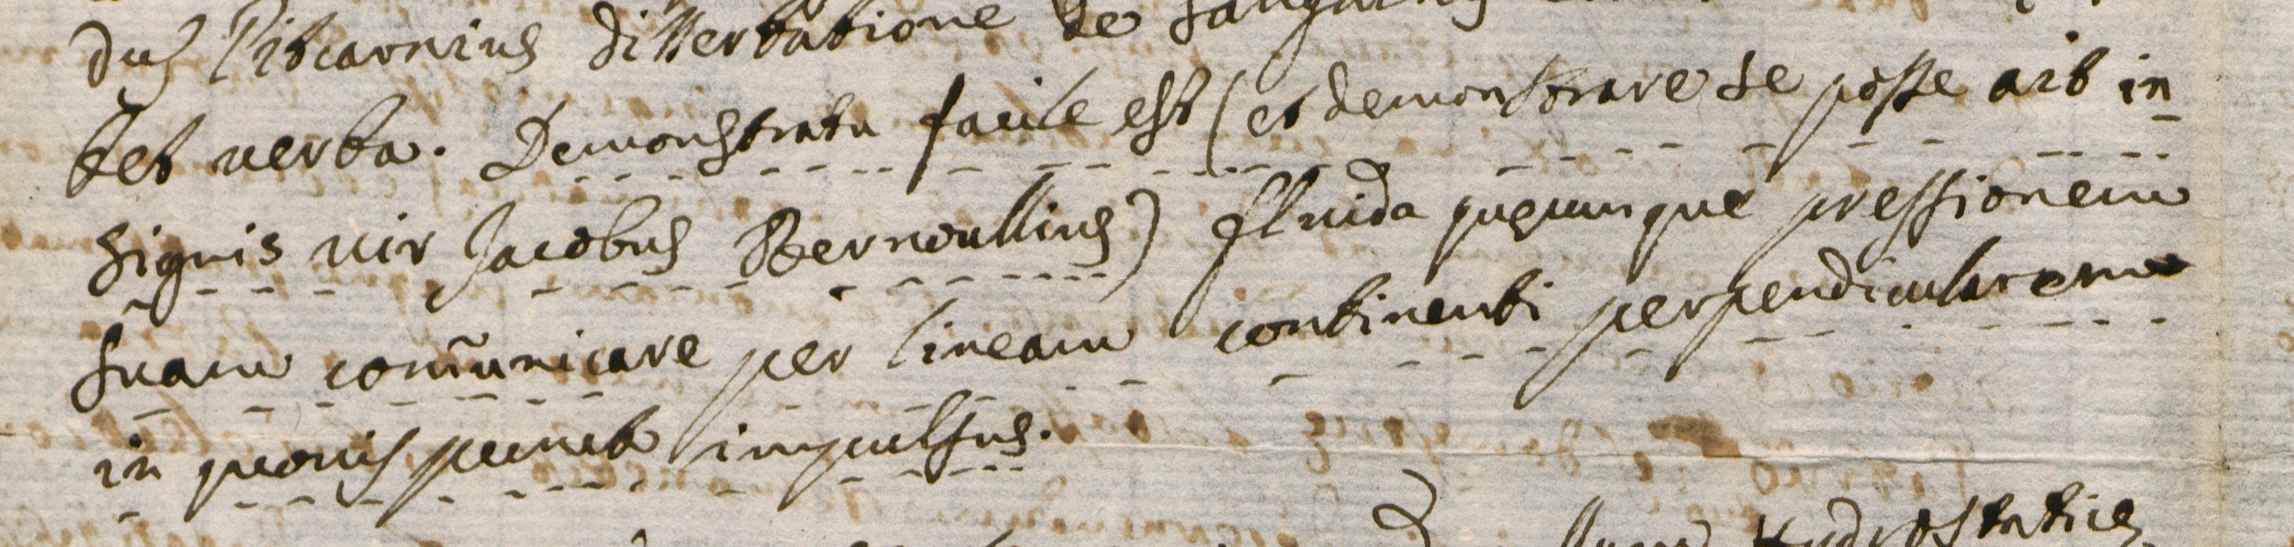 dus Pitcarnius dissertatione de
bet verba. Demonstratu facile est (et demonstrare se posse ait in
signis vir Jacobus Bernoullius) fluida quæcunque pressionem
suam com̃unicare per lineam continenti perpendicularem
in quovis puncto impulsus.
Hydrostatica